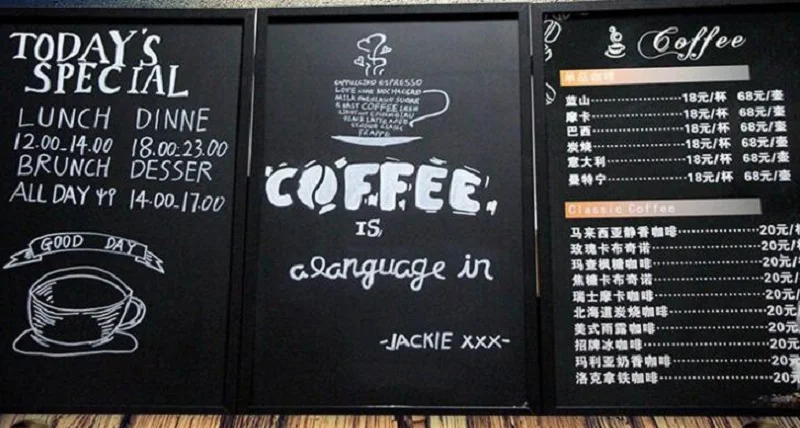 TODAY'S
SPECIAL
LUNCH DINNE
12.00-14.00 18.00-23.00
BRUNCH DESSER
ALL DAY 14.00-17.00
GOOD DAY
CAPPUCCINO ESPRESSO
LOVE MOCHA
MILK SUGAR
COFFEE IRISH
FRAPPE
COFFEE
IS
a language in
-JACKIE XXX-
Coffee
单品咖啡
蓝山 18元/杯 68元/壶
摩卡 18元/杯 68元/壶
巴西 18元/杯 68元/壶
炭烧 18元/杯 68元/壶
意大利 18元/杯 68元/壶
曼特宁 18元/杯 68元/壶
Classic Coffee
马来西亚静香咖啡 20元/
玫瑰卡布奇诺 20元/
玛查枫糖咖啡 20元/
焦糖卡布奇诺 20元/
瑞士摩卡咖啡 20元/
北海道炭烧咖啡 20元/
美式雨露咖啡 20元/
招牌冰咖啡 20元/
玛利亚奶香咖啡 20元
洛克拿铁咖啡 20元